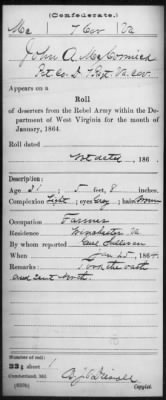 (Confederate.)
Mc | 7 Cav | Va
John A. McCormick
Pvt. Co. D, 7 Regt. Va. Cav.
Appears on a
Roll
of deserters from the Rebel Army within the De-
partment of West Virginia for the month of
January, 1864.
Roll dated
Not dated, 186 .
Description:
Age 21; 5 feet, 8 inches.
Complexion Light; eyes Gray; hair Brown
Occupation Farmer
Residence Winchester Va
By whom reported Genl Sullivan
When Jan 25, 1864.
Remarks: Took the oath
and sent North.
Number of roll:
33; sheet 1
Cumberland, Md.